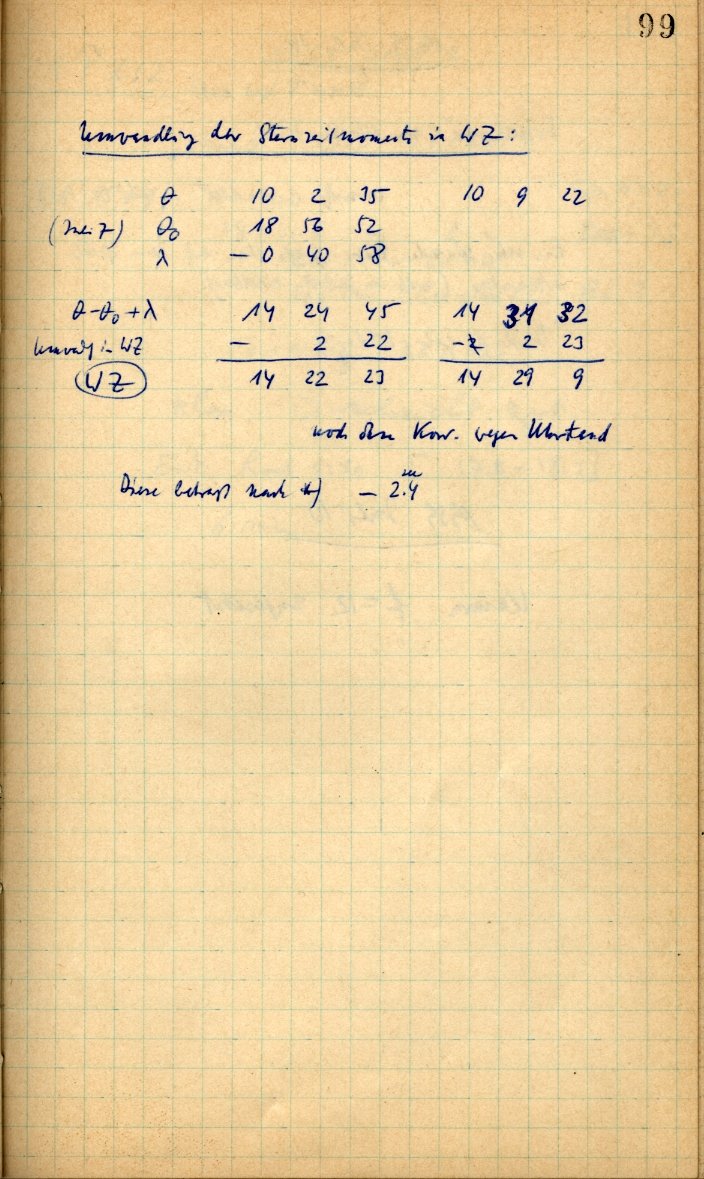 99
Umwandlung der Sternzeitmomente in WZ:
θ 10 2 35 10 9 22
θ₀ 18 56 52
λ – 0 40 58
θ-θ₀+λ 14 24 45 14 31 32
Umwdlg in WZ – 2 22 – 2 23
WZ 14 22 23 14 29 9
noch ohne Korr. wegen Uhrstand
Diese beträgt nach *) – 2.4ᵐ